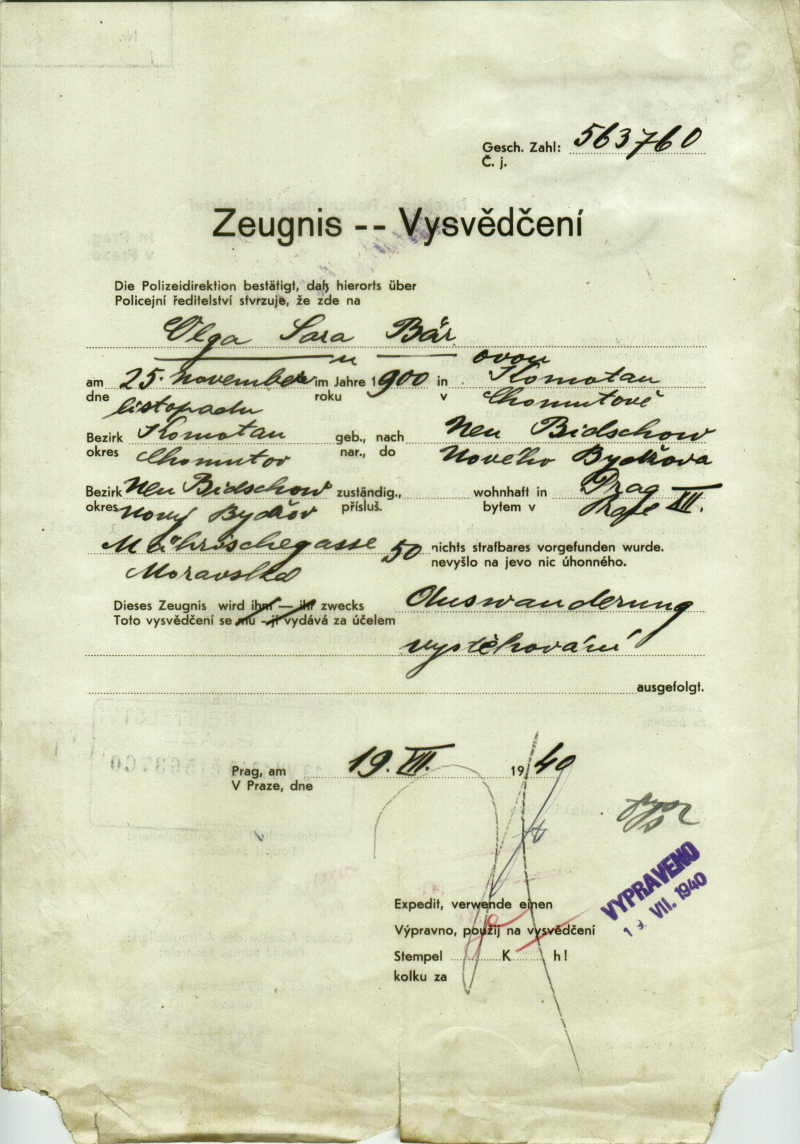 Nr.
Gesch. Zahl: 563760
Č. j.
Zeugnis -- Vysvědčení
Die Polizeidirektion bestätigt, daß hierorts über
Policejní ředitelství stvrzuje, že zde na
Olga Sara Bär
u ovou
am 25. November im Jahre 1900 in Komotau
dne listopadu roku v Chomutově
Bezirk Komotau geb., nach Neu Bidschow
okres Chomutov nar., do Nového Bydžova
Bezirk Neu Bidschow zuständig., wohnhaft in Prag XII.
okres Nový Bydžov přísluš. bytem v Praze
Mährischegasse 50 nichts strafbares vorgefunden wurde.
Moravská nevyšlo na jevo nic úhonného.
Dieses Zeugnis wird ihm — ihr zwecks Auswanderung
Toto vysvědčení se mu - jí vydává za účelem
vystěhování
ausgefolgt.
Prag, am 19. VII. 1940
V Praze, dne
VYPRAVENO
VII. 1940
Expedit, verwende einen
Výpravno, použij na vysvědčení
Stempel K h!
kolku za